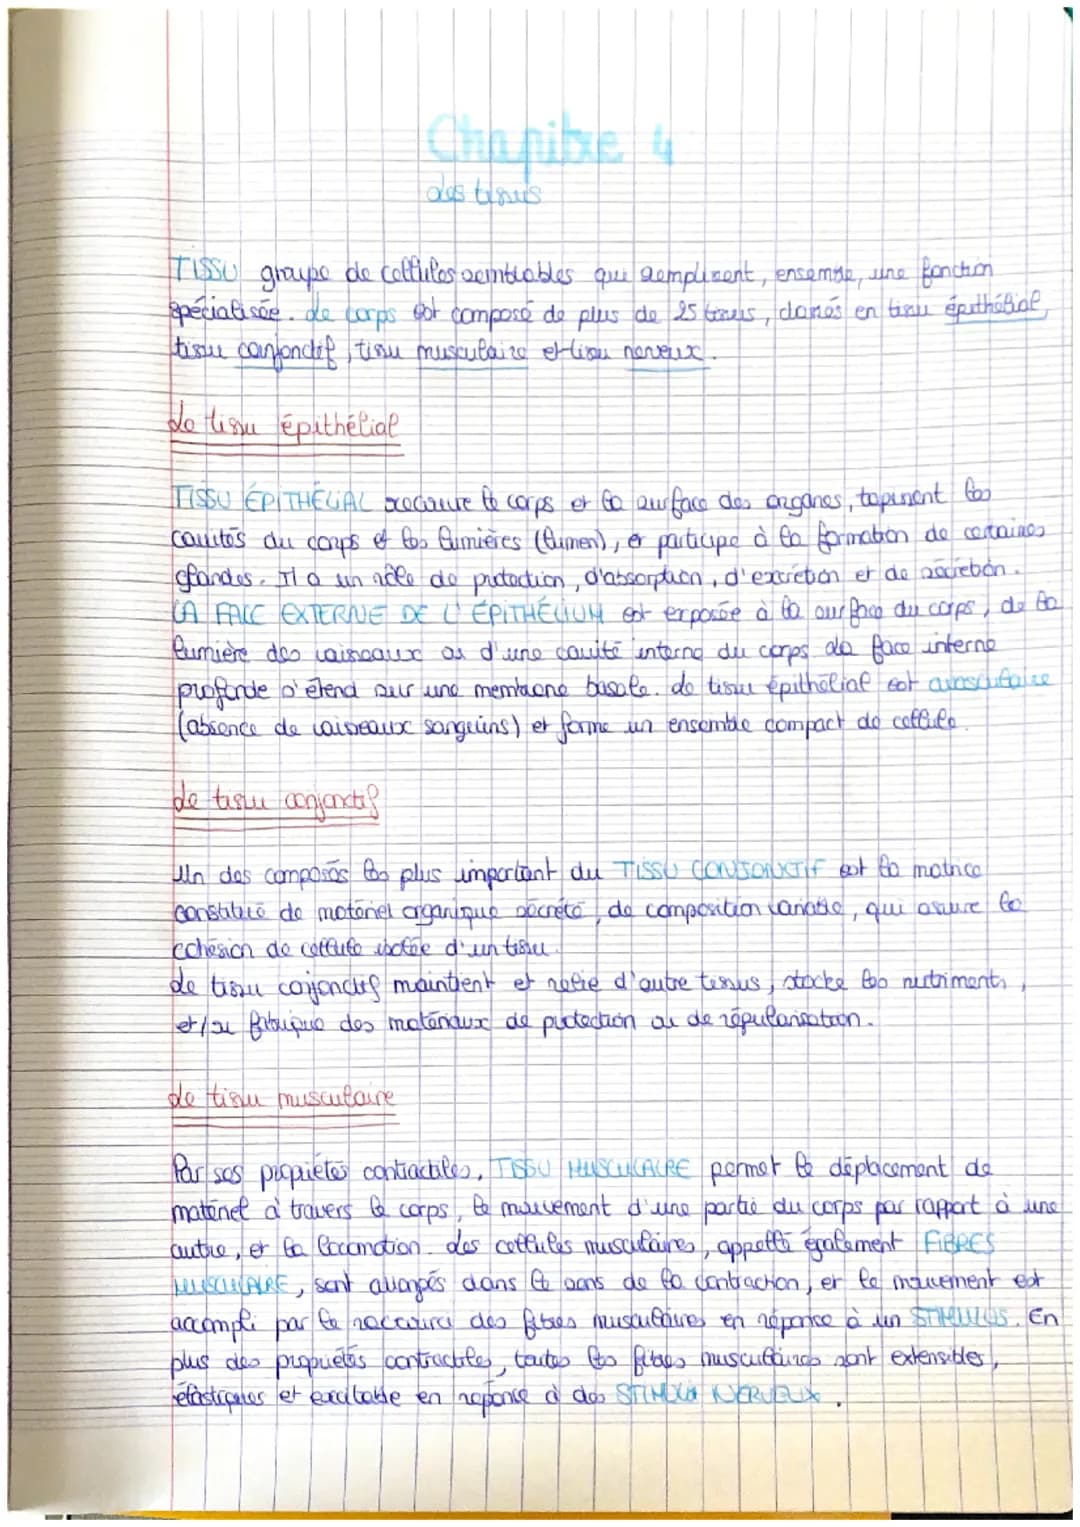 Chapitre 4
les tissus
TISSU groupe de cellules semblables qui remplissent, ensemble, une fonction
spécialisée. Le corps est composé de plus de 25 tissus, classés en tissu épithélial,
tissu conjonctif, tissu musculaire et tissu nerveux.
Le tissu épithélial
TISSU ÉPITHÉLIAL recouvre le corps et la surface des organes, tapissent les
cavités du corps et les lumières (lumen), et participe à la formation de certaines
glandes. Il a un rôle de protection, d'absorption, d'excrétion et de sécrétion.
LA FACE EXTERNE DE L'ÉPITHÉLIUM est exposée à la surface du corps, de la
lumière des vaisseaux ou d'une cavité interne du corps. La face interne
profonde s'étend sur une membrane basale. Le tissu épithélial est avasculaire
(absence de vaisseaux sanguins) et forme un ensemble compact de cellule.
Le tissu conjonctif
Un des composés les plus important du TISSU CONJONCTIF est la matrice
constitué de matériel organique sécrété, de composition variable, qui assure la
cohésion de cellule isolée d'un tissu.
Le tissu conjonctif maintient et relie d'autre tissus, stocke les nutriments,
et/ou fabrique des matériaux de protection ou de régularisation.
Le tissu musculaire
Par ses propriétés contractiles, TISSU MUSCULAIRE permet le déplacement de
matériel à travers le corps, le mouvement d'une partie du corps par rapport à une
autre, et la locomotion. Les cellules musculaires, appellé également FIBRES
MUSCULAIRE, sont allongés dans le sens de la contraction, et le mouvement est
accompli par le raccourci des fibres musculaires en réponce à un STIMULUS. En
plus des propriétés contractiles, toutes les fibres musculaires sont extensibles,
élastiques et excitable en reponse à des STIMULI NERVEUX.